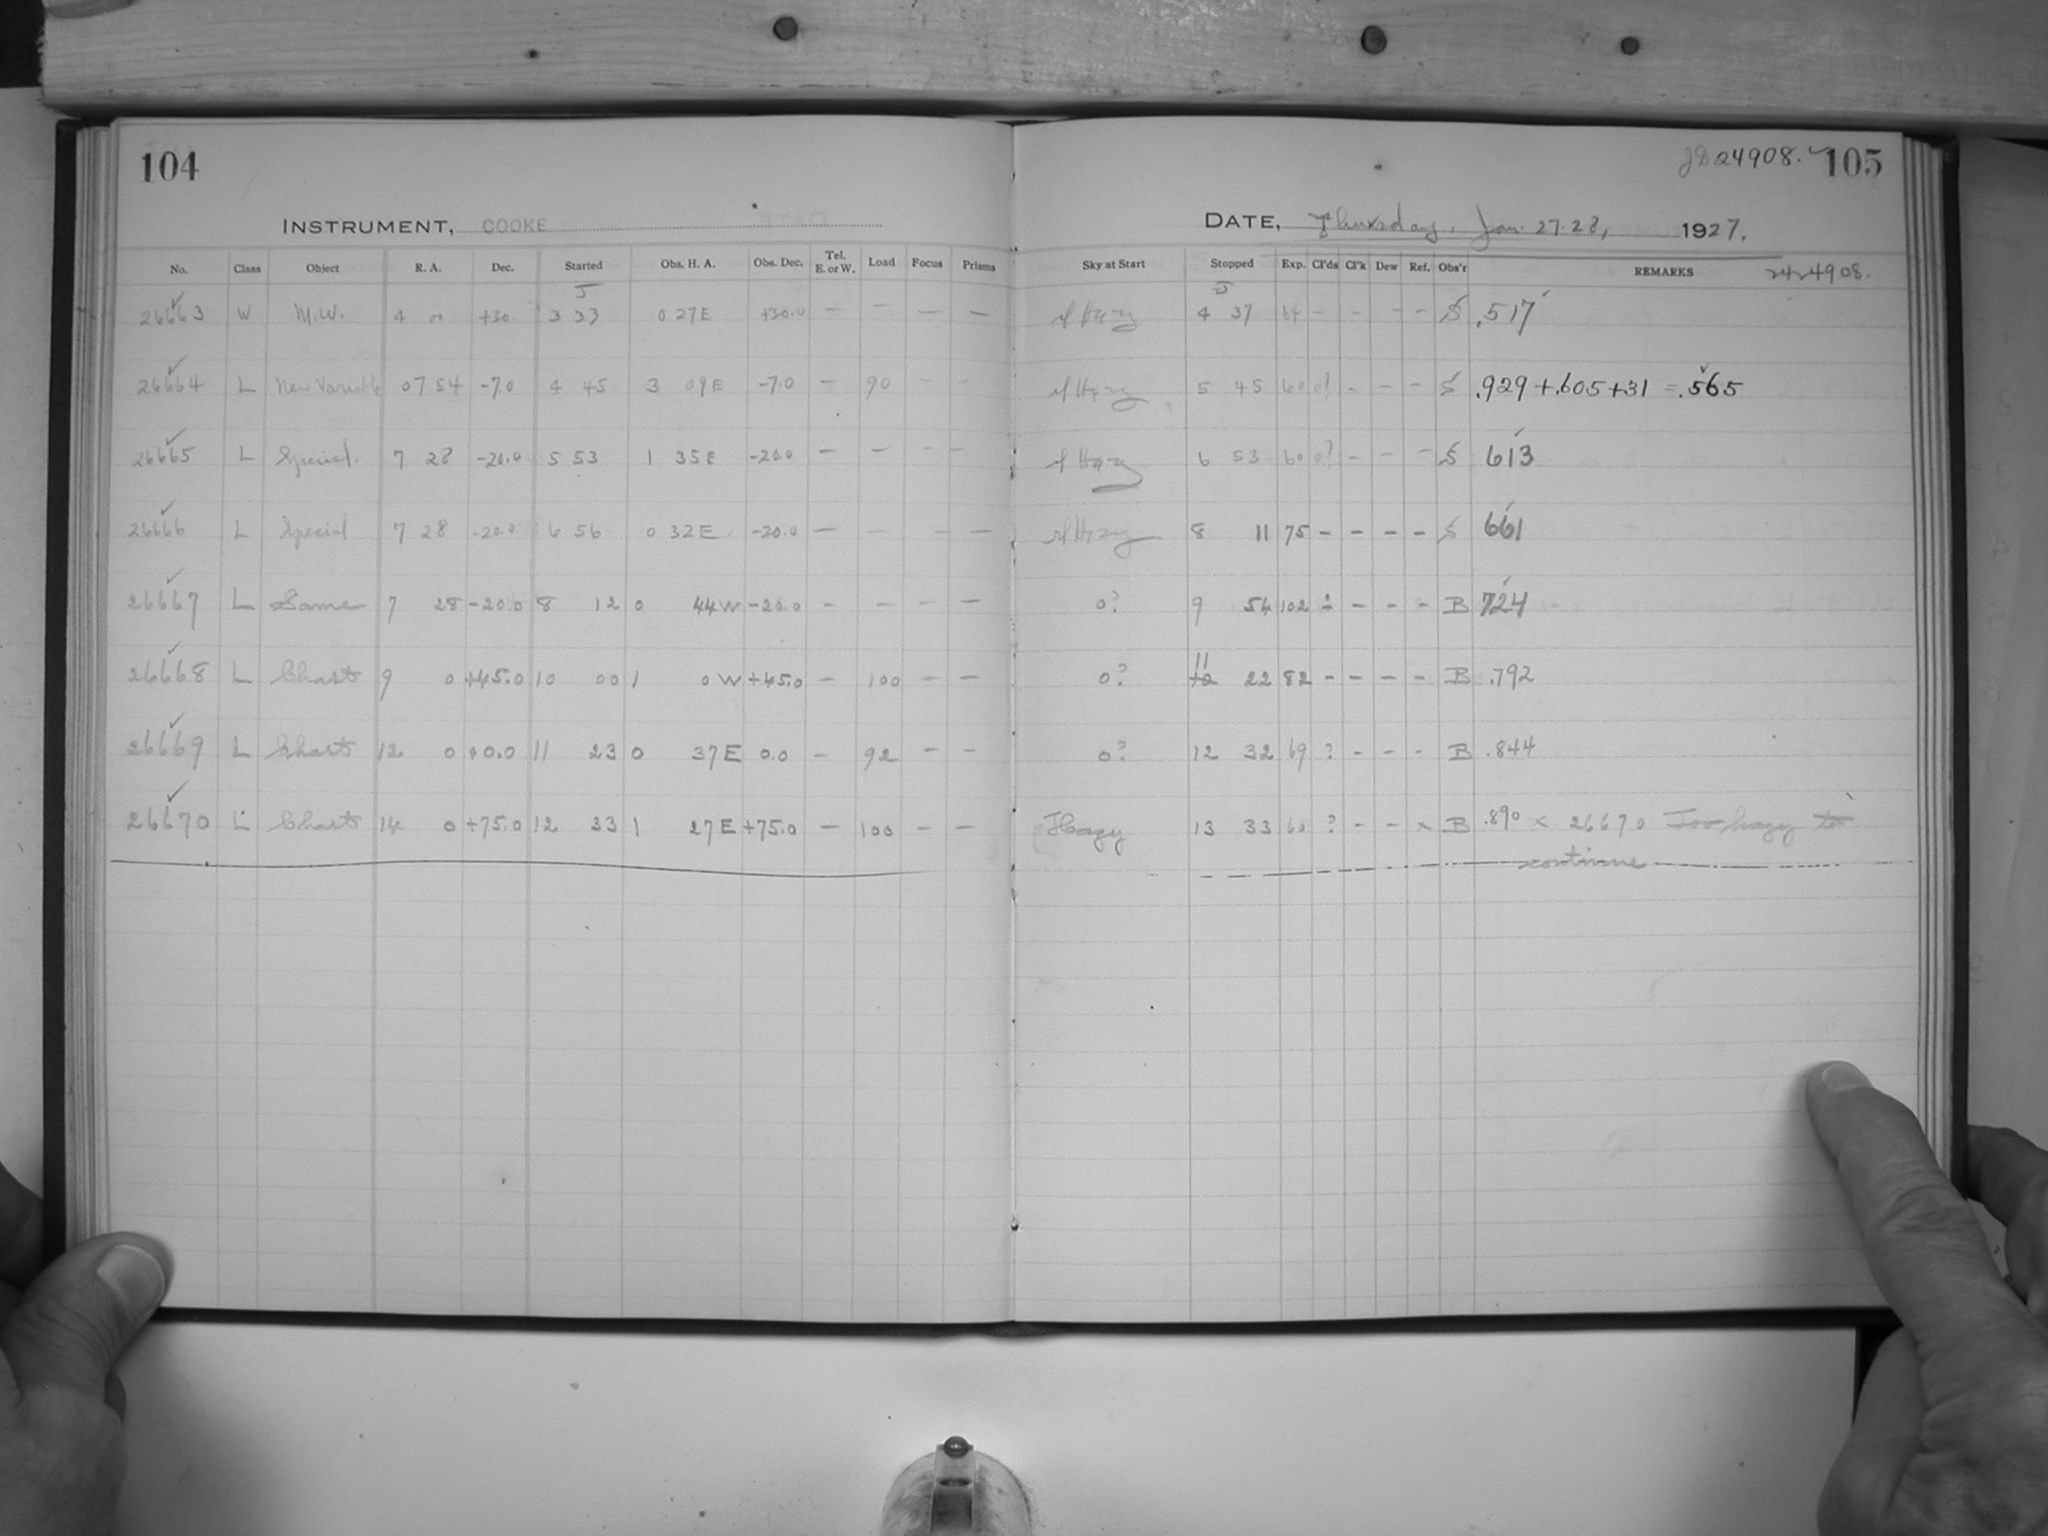 104
INSTRUMENT, COOKE
No. Class Object R. A. Dec. Started Obs. H. A. Obs. Dec. Tel. E. or W. Load Focus Prisms
26663 W M.W. 4 00 +30. 3 33 0 27 E +30.0 — — — —
26664 L New Variable 07 54 -7.0 4 45 3 09 E -7.0 — 90 — —
26665 L Special. 7 28 -20.0 5 53 1 35 E -20.0 — — — —
26666 L Special 7 28 -20.0 6 56 0 32 E -20.0 — — — —
26667 L Same 7 28 -20.0 8 12 0 44 W -20.0 — — — —
26668 L Chart 9 0 +45.0 10 00 1 0 W +45.0 — 100 — —
26669 L Chart 12 0 +0.0 11 23 0 37 E 0.0 — 92 — —
26670 L Chart 14 0 +75.0 12 33 1 27 E +75.0 — 100 — —
JD 24908. 105
DATE, Thursday, Jan. 27-28, 1927.
Sky at Start Stopped Exp. Cl'ds Cl'k Dew Ref. Obs'r REMARKS 2424908.
Hazy 4 37 64 — — — — S .517
Hazy 5 45 60 0? — — — S .929 + .605 + 31 = .565
Hazy 6 53 60 0? — — — S 613
Hazy 8 11 75 — — — — S 661
0? 9 54 102 — — — B 724
0? 11 22 82 — — — — B .792
0? 12 32 69 ? — — — B .844
Hazy 13 33 60 ? — — x B .890 x 26670 Too hazy to
continue